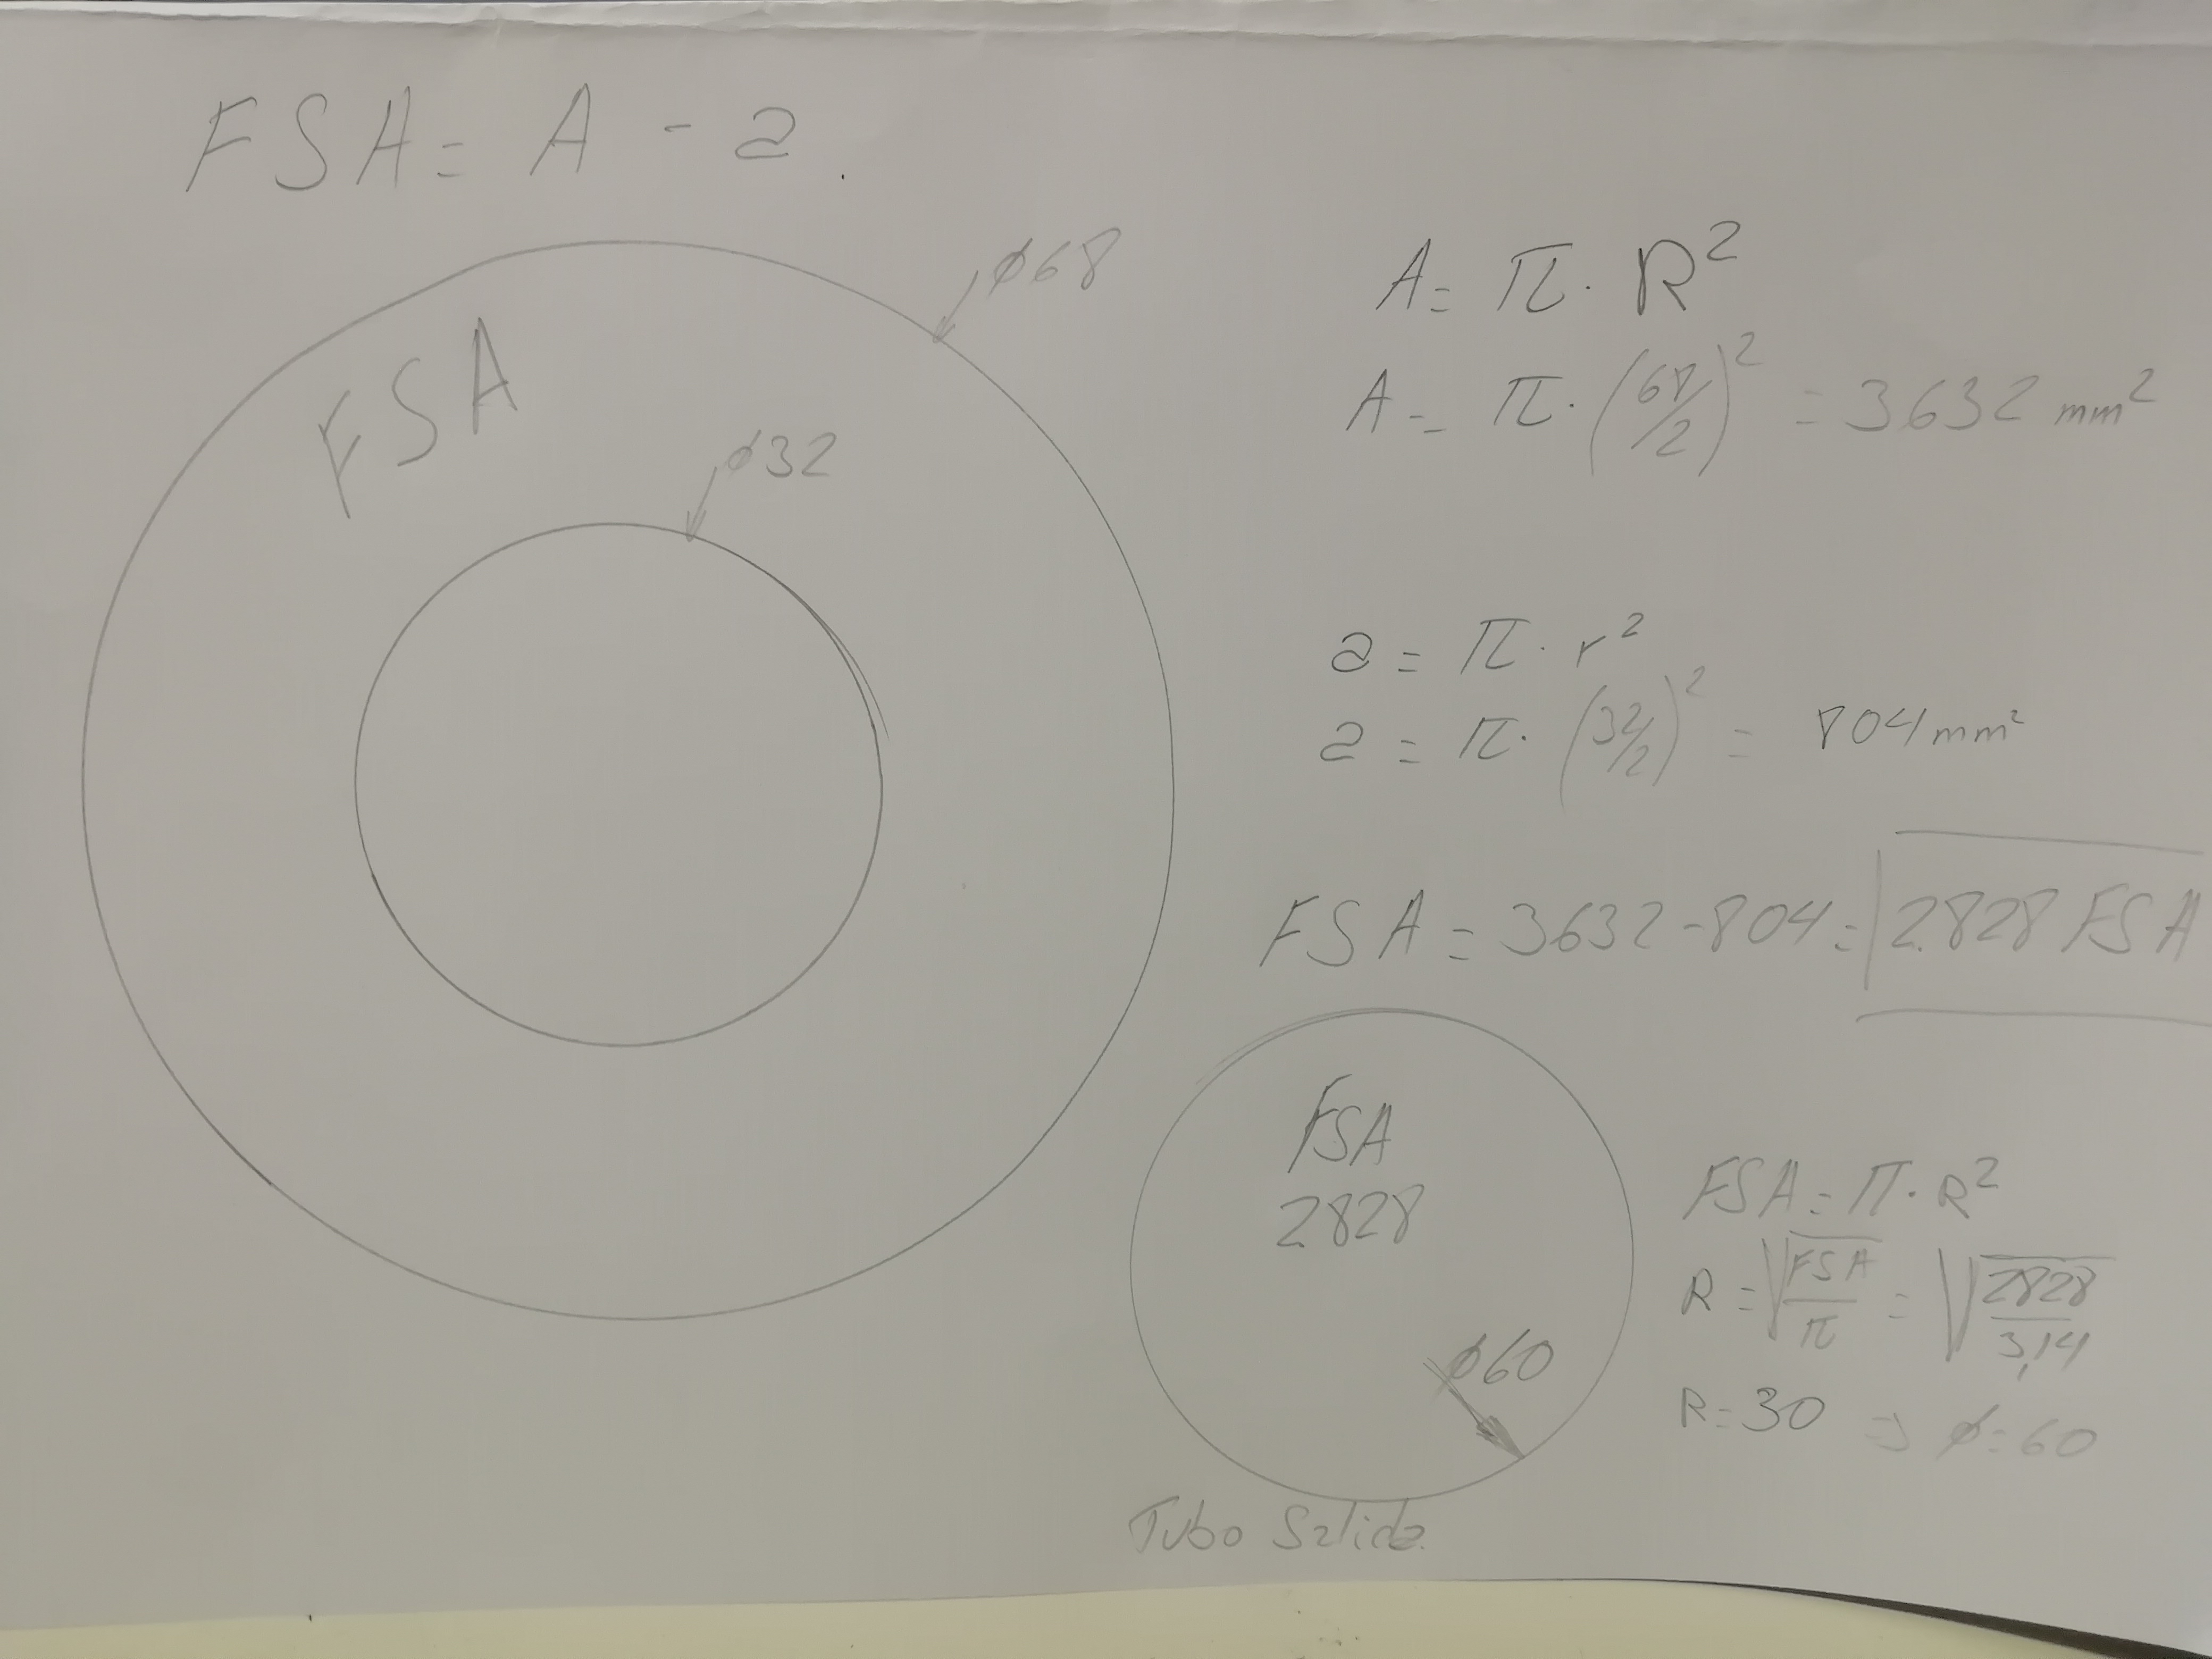 FSA = A - a.
ø68
FSA
ø32
A = π · R²
A = π · (68/2)² = 3632 mm²
a = π · r²
a = π · (32/2)² = 804 mm²
FSA = 3632 - 804 = 2.828 FSA
FSA
2828
ø60
Tubo Salida.
FSA = π · R²
R = √(FSA/π) = √(2828/3,14)
R = 30 ⇒ ø = 60